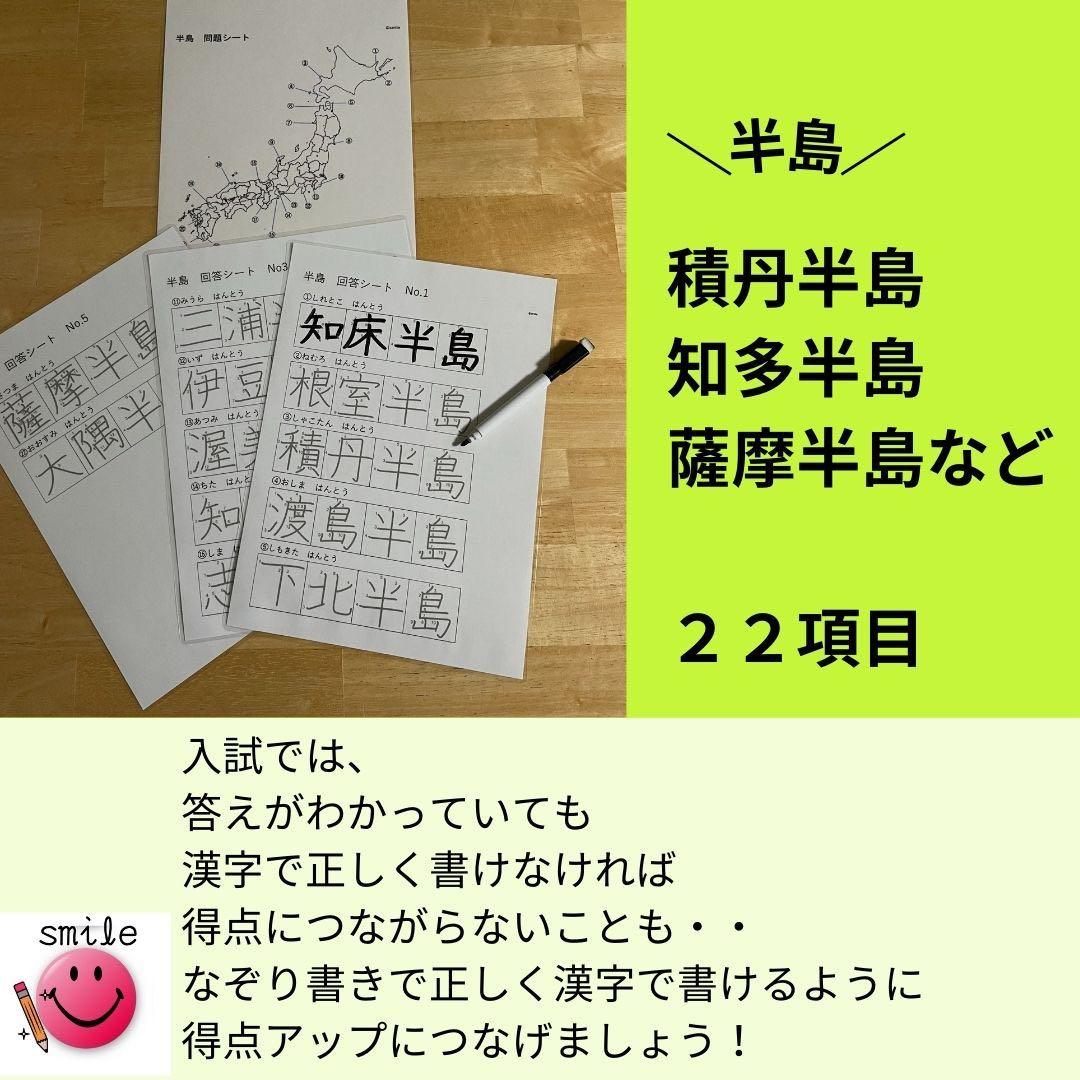 半島　問題シート
©smile
＼半島／
積丹半島
知多半島
薩摩半島など
２２項目
回答シート　No.5
さつま　はんとう
薩摩半島
㉒おおすみ　はんとう
大隅半
半島　回答シート　No3
⑪みうら　はんとう
三浦
⑫いず　はんとう
伊豆
⑬あつみ　はんとう
渥美
⑭ちた　はんとう
知
⑮しま
志
半島　回答シート　No.1
①しれとこ　はんとう
知床半島
②ねむろ　はんとう
根室半島
③しゃこたん　はんとう
積丹半島
④おしま　はんとう
渡島半島
⑤しもきた　はんとう
下北半島
入試では、
答えがわかっていても
漢字で正しく書けなければ
得点につながらないことも・・
なぞり書きで正しく漢字で書けるように
得点アップにつなげましょう！
smile